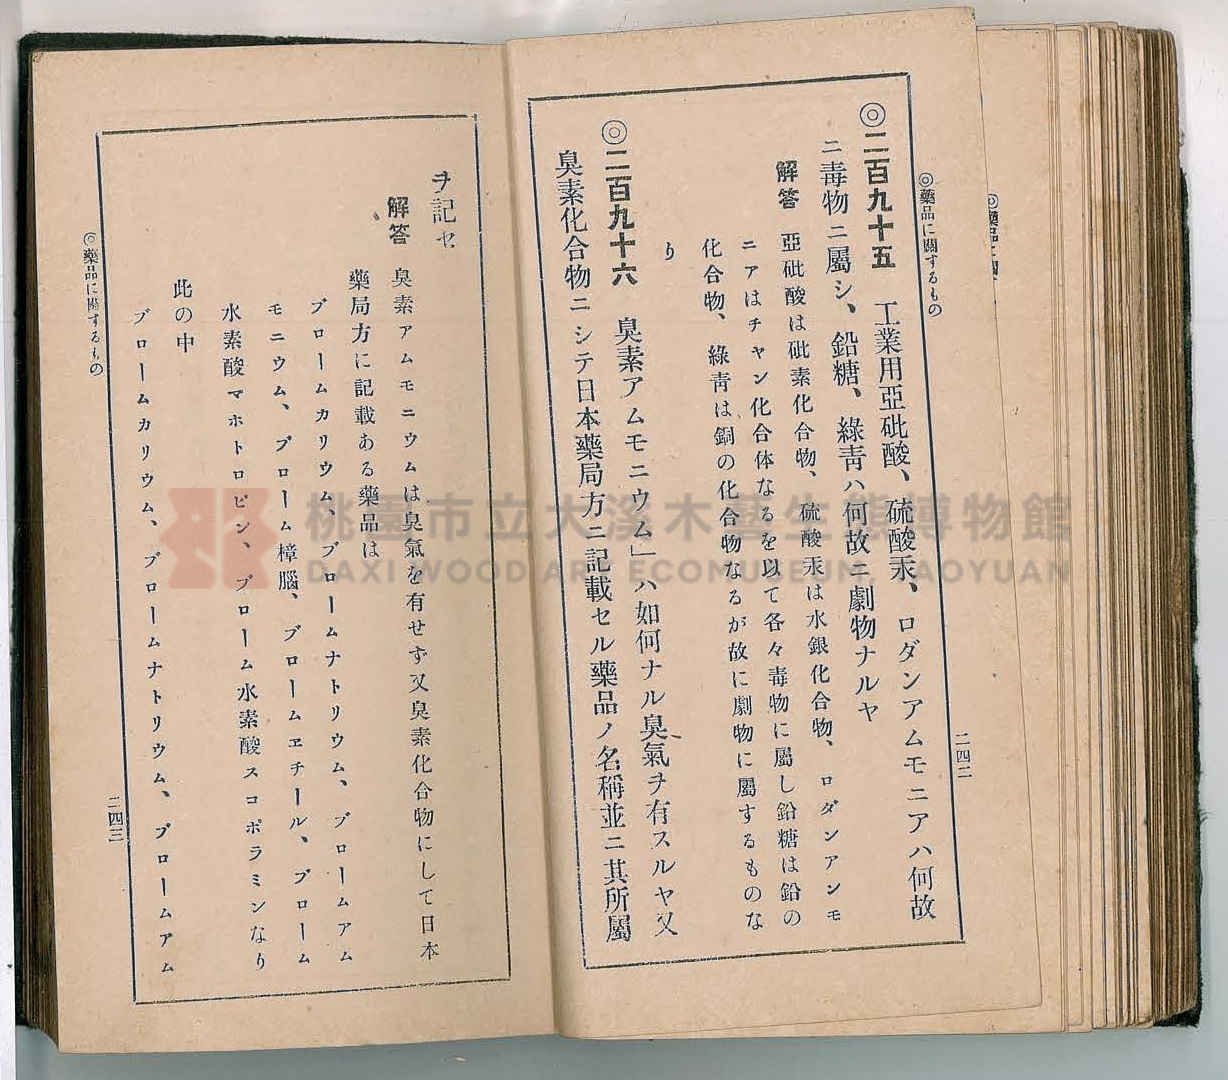 ◎藥品に關するもの
二四二
◎二百九十五　工業用亞砒酸、硫酸汞、ロダンアムモニアハ何故
ニ毒物ニ屬シ、鉛糖、綠靑ハ何故ニ劇物ナルヤ
解答　亞砒酸は砒素化合物、硫酸汞は水銀化合物、ロダンアンモ
ニアはチャン化合体なるを以て各々毒物に屬し鉛糖は鉛の
化合物、綠靑は銅の化合物なるが故に劇物に屬するものな
り
◎二百九十六　臭素アムモニウム」ハ如何ナル臭氣ヲ有スルヤ又
臭素化合物ニシテ日本藥局方ニ記載セル藥品ノ名稱並ニ其所屬
ヲ記セ
解答　臭素アムモニウムは臭氣を有せず又臭素化合物にして日本
藥局方に記載ある藥品は
ブロームカリウム、ブロームナトリウム、ブロームアム
モニウム、ブローム樟腦、ブロームエチール、ブローム
水素酸マホトロピン、ブローム水素酸スコポラミンなり
此の中
ブロームカリウム、ブロームナトリウム、ブロームアム
◎藥品に關するもの
二四三
桃園市立大溪木藝生態博物館
DAXI WOOD ART ECOMUSEUM, TAOYUAN